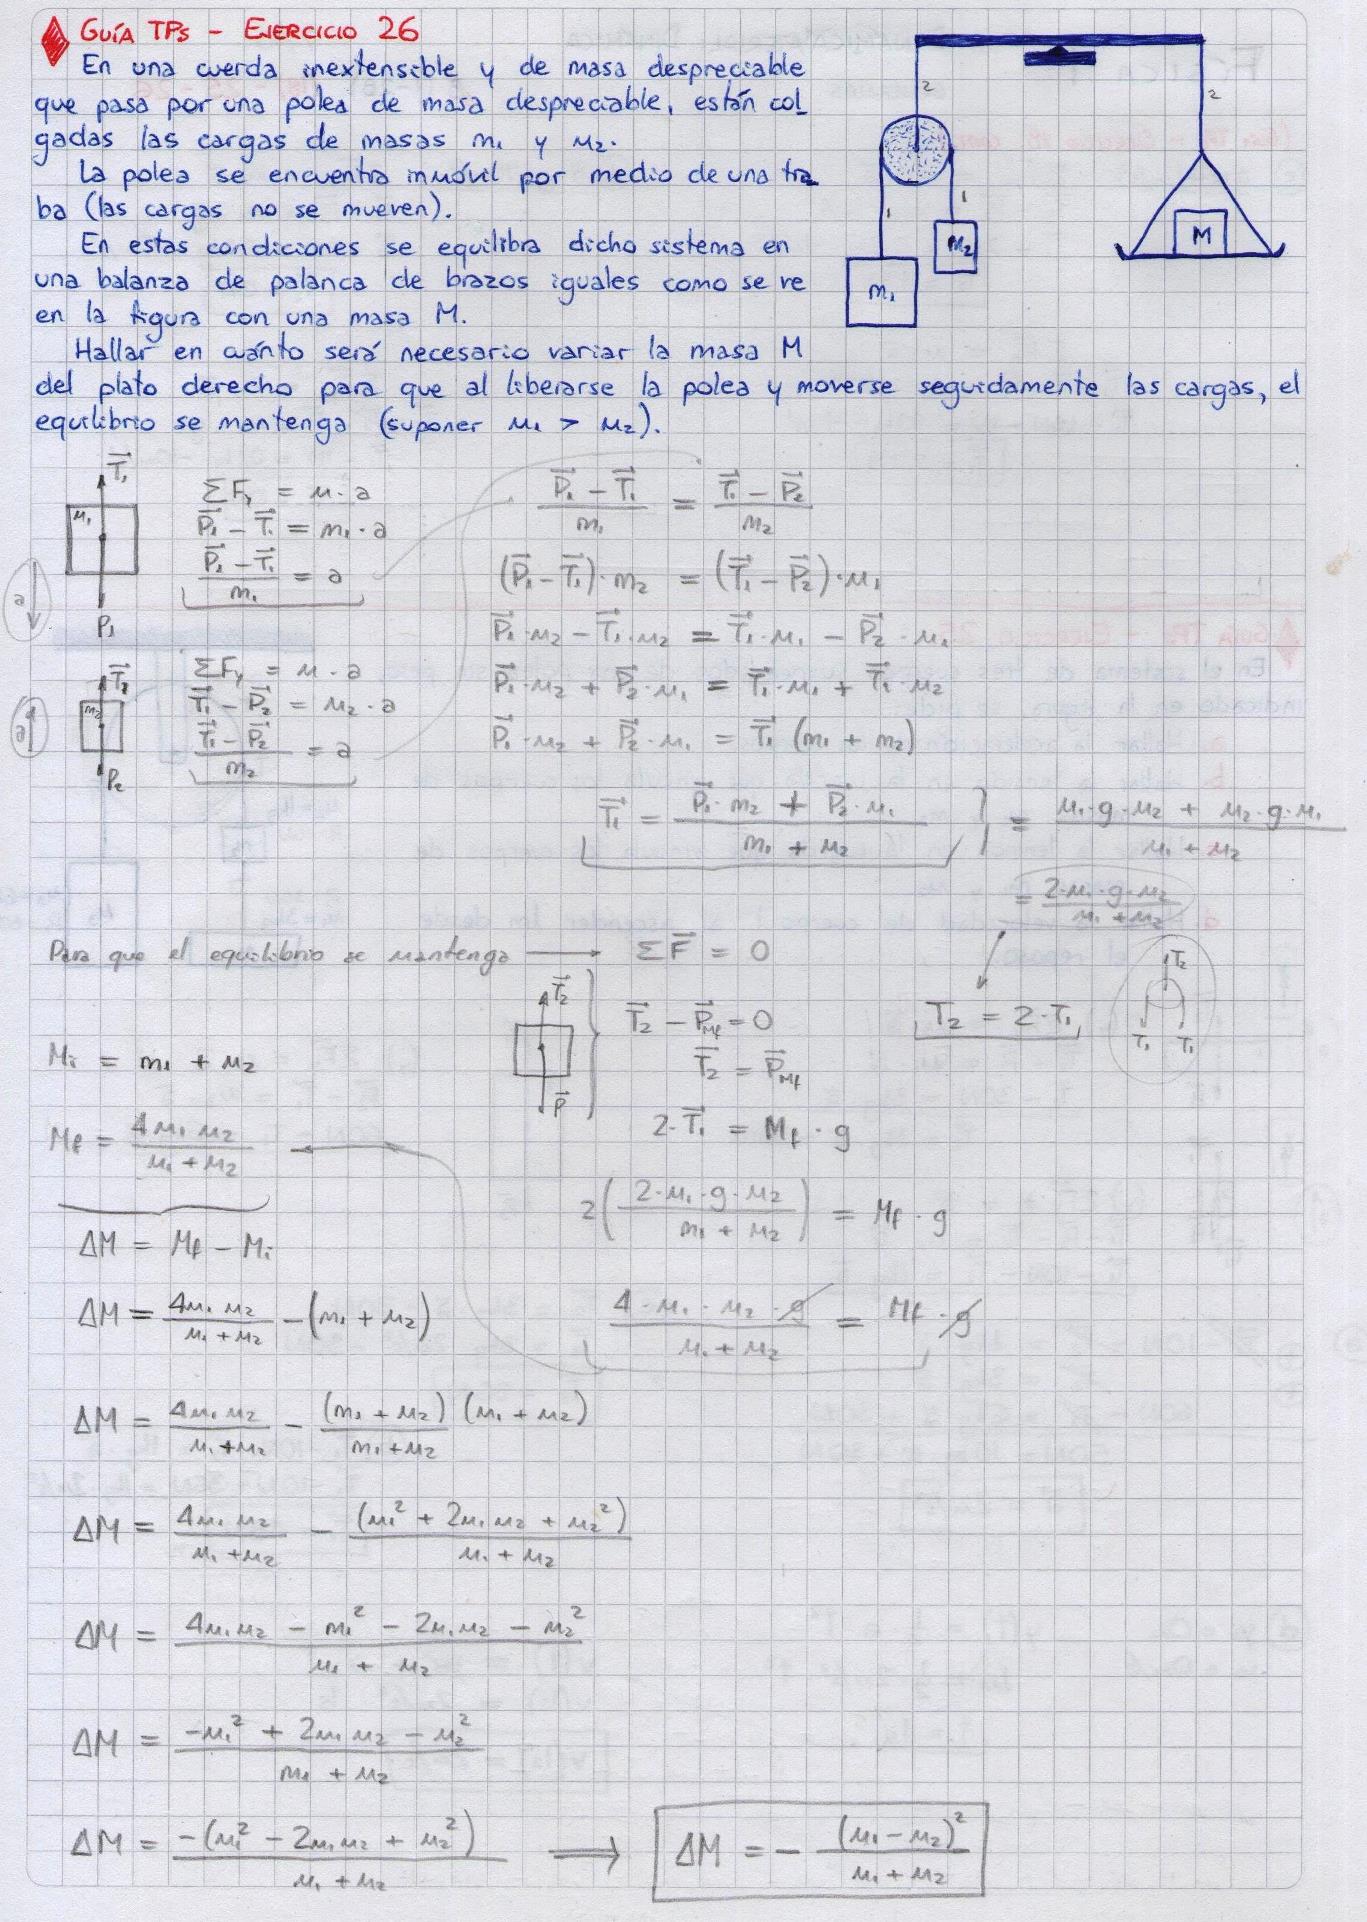 GUÍA TPs - EJERCICIO 26
En una cuerda inextensible y de masa despreciable
que pasa por una polea de masa despreciable, están col
gadas las cargas de masas m₁ y m₂.
La polea se encuentra inmóvil por medio de una tra
ba (las cargas no se mueven).
En estas condiciones se equilibra dicho sistema en
una balanza de palanca de brazos iguales como se ve
en la figura con una masa M.
Hallar en cuánto será necesario variar la masa M
del plato derecho para que al liberarse la polea y moverse seguidamente las cargas, el
equilibrio se mantenga (suponer m₁ > m₂).
2
2
1
1
m₁
m₂
M
T₁
m₁
a
P₁
ΣFy = m · a
P₁ - T₁ = m₁ · a
(P₁ - T₁)/m₁ = a
T₁
m₂
a
P₂
ΣFy = m · a
T₁ - P₂ = m₂ · a
(T₁ - P₂)/m₂ = a
(P₁ - T₁)/m₁ = (T₁ - P₂)/m₂
(P₁ - T₁) · m₂ = (T₁ - P₂) · m₁
P₁ · m₂ - T₁ · m₂ = T₁ · m₁ - P₂ · m₁
P₁ · m₂ + P₂ · m₁ = T₁ · m₁ + T₁ · m₂
P₁ · m₂ + P₂ · m₁ = T₁ (m₁ + m₂)
T₁ = (P₁ · m₂ + P₂ · m₁)/(m₁ + m₂) } = (m₁ · g · m₂ + m₂ · g · m₁)/(m₁ + m₂)
= (2 · m₁ · g · m₂)/(m₁ + m₂)
Para que el equilibrio se mantenga → ΣF = 0
T₂
P
T₂ - P_Mf = 0
T₂ = P_Mf
T₂ = 2 · T₁
T₂
T₁ T₁
2 · T₁ = Mf · g
2((2 · m₁ · g · m₂)/(m₁ + m₂)) = Mf · g
(4 · m₁ · m₂ · g)/(m₁ + m₂) = Mf · g
Mi = m₁ + m₂
Mf = (4m₁m₂)/(m₁ + m₂)
ΔM = Mf - Mi
ΔM = (4m₁m₂)/(m₁ + m₂) - (m₁ + m₂)
ΔM = (4m₁m₂)/(m₁ + m₂) - ((m₁ + m₂)(m₁ + m₂))/(m₁ + m₂)
ΔM = (4m₁m₂)/(m₁ + m₂) - (m₁² + 2m₁m₂ + m₂²)/(m₁ + m₂)
ΔM = (4m₁m₂ - m₁² - 2m₁m₂ - m₂²)/(m₁ + m₂)
ΔM = (-m₁² + 2m₁m₂ - m₂²)/(m₁ + m₂)
ΔM = -(m₁² - 2m₁m₂ + m₂²)/(m₁ + m₂) ⟹ ΔM = - (m₁ - m₂)²/(m₁ + m₂)